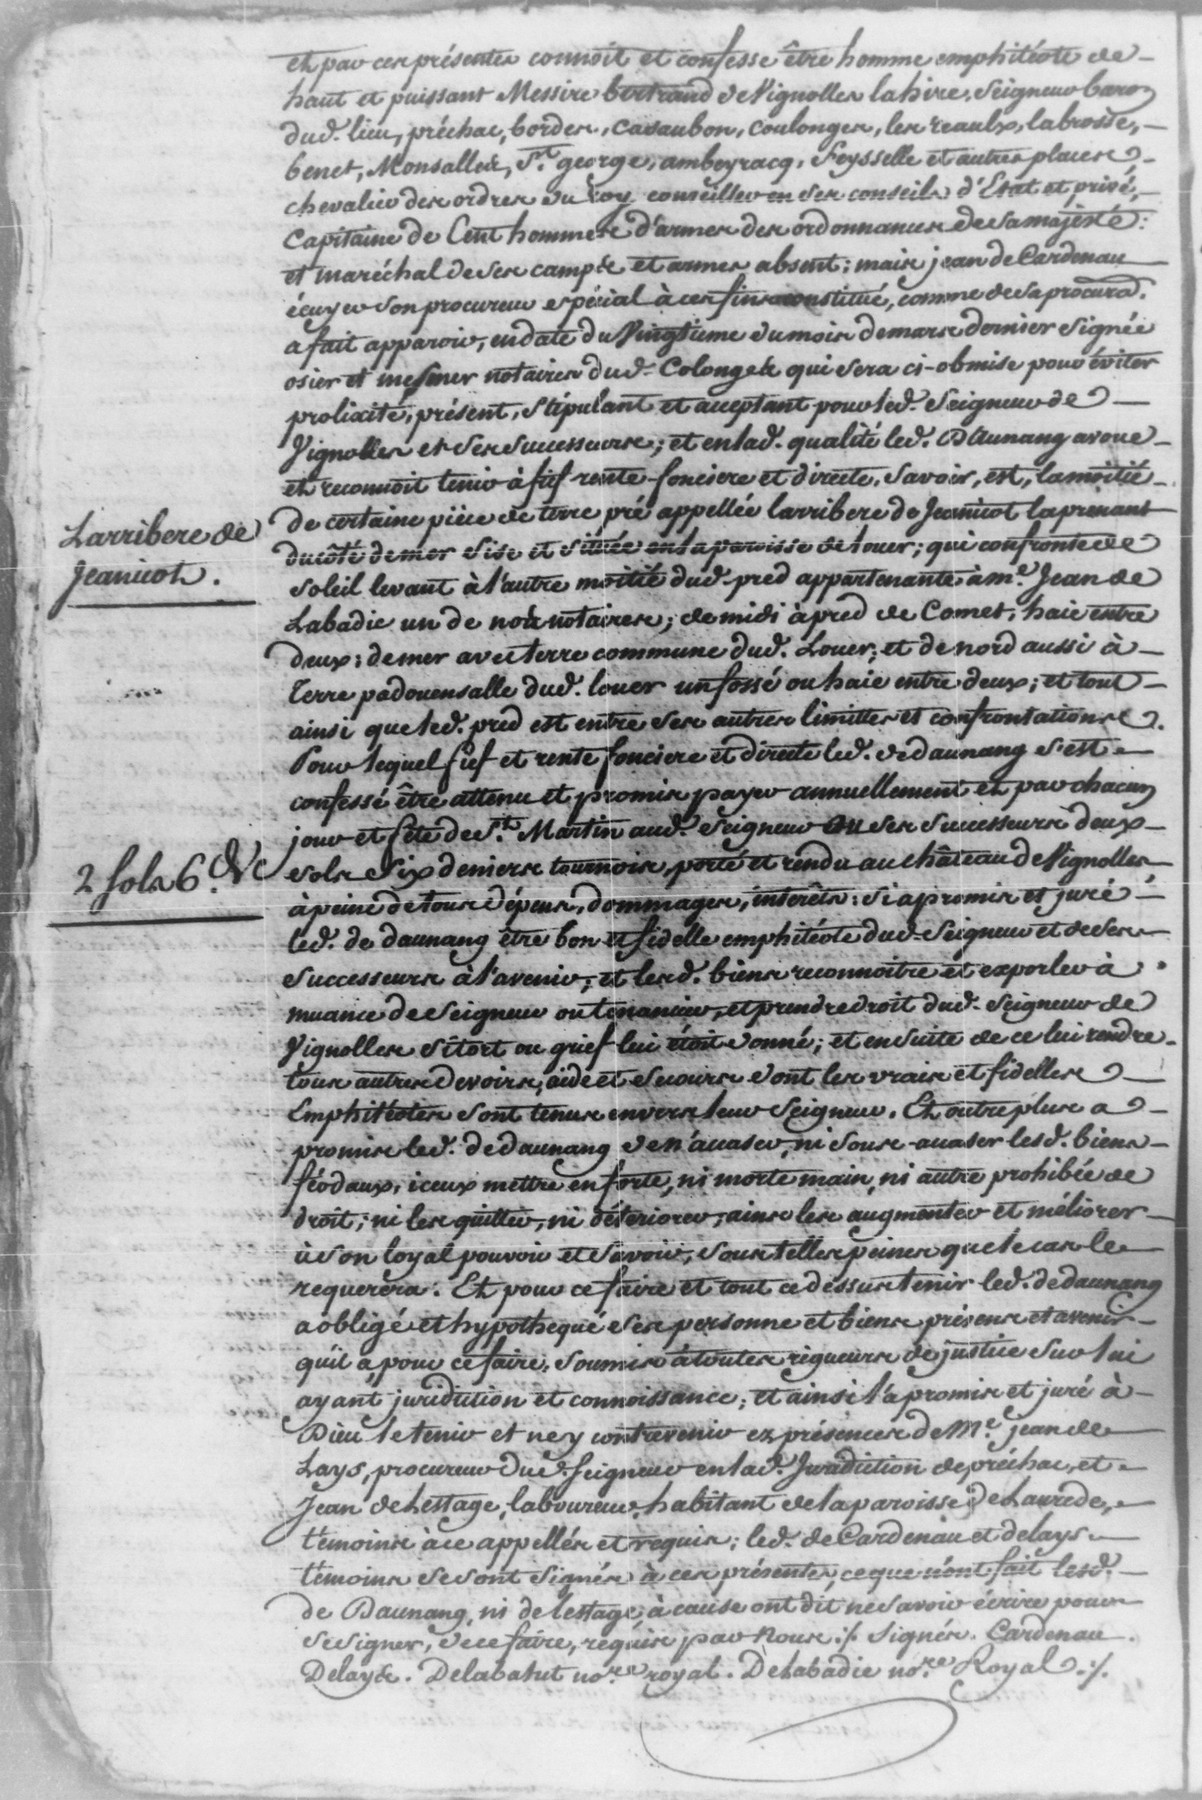 et par ces présentes connoit et confesse être homme emphitéote de
haut et puissant Messire bertrand de Vignolles lahire, Seigneur baron
dud. lieu, préchac, bordes, Casaubon, Coulonges, les reaulx, labrosse,
benet, Monsalles, St. george, ambeyracq, feysselle et autres places
chevalier des ordres du Roy conseiller en ses conseils d'Etat et privé,
Capitaine de Cent hommes d'armes des ordonnances de sa majesté:
et maréchal de ses camps et armes absent; mais jean de Cardenau
écuyer son procureur espécial à ces fins constitué, comme de sa procura[on].
a fait apparoir, en date du Vingtieme du mois de mars dernier signée
osier et mesmer notaires dud. Colonges qui sera ci-obmise pour éviter
prolixité, présent, stipulant et acceptant pour led. Seigneur de
Vignolles et ses successeurs; et en lad. qualité led. Daunang avoue
et reconnoit tenir à fief rente fonciere et directe, savoir, est, la moitié
de certaine pièce de terre pré appellée larribere de Jeanicot la prenant
du côté de mer sise et située en la paroisse de louer; qui confronte de
soleil levant à l'autre moitié dud. pred appartenante à me. Jean de
Labadie un de nous notaires; de midi à pred de Comet, haie entre
deux; de mer avec terre commune dud. Louer; et de nord aussi à
Terre padouensalle dud. louer un fossé ou haie entre deux; et tout
ainsi que led. pred est entre ses autres limittes et confrontations.
Pour lequel fief et rente fonciere et directe led. de daunang s'est
confessé être attenu et promis payer annuellement et par chacun
jour et fête de St. Martin aud. Seigneur ou ses successeurs deux
sols six deniers tournois, porté et rendu au château de Vignolles
à peine de tous dépens, dommages, interêts: si a promis et juré
led. de daunang être bon et fidelle emphitéote dud. Seigneur et de ses
successeurs à l'avenir; et lesd. biens reconnoitre et exporler à
muance de Seigneur ou tenancier, et prendre droit dud. Seigneur de
Vignolles si tort ou grief lui étoit donné; et ensuite de ce lui rendre
tous autres devoirs, aide et secours dont les vrais et fidelles
Emphitéotes sont tenus envers leur Seigneur. Et outre plus a
promis led. de daunang de n'acaser, ni sous-acaser lesd. biens
féodaux, iceux mettre en forte, ni morte main, ni autre prohibée de
droit; ni les quitter, ni déteriorer, ains les augmenter et méliorer
à son loyal pouvoir et savoir, sous telles peines que le cas le
requerera. Et pour ce faire et tout ce dessus tenir led. de daunang
a obligé et hypothequé ses personne et biens présens et avenir
qu'il a pour ce faire, soumis à toutes rigueurs de justice sur lui
ayant juridiction et connoissance; et ainsi l'a promis et juré à
Dieu le tenir et ne y contrevenir ez présences de Me. jean de
Lays, procureur dud. Seigneur en lad. Juridiction de préchac, et
Jean de Lestage, laboureur, habitant de la paroisse de Laurede,
témoins à ce appellés et requis; led. de Cardenau et de lays
témoins se sont signés à ces présentes, ce que n'ont fait lesd.
de Daunang, ni de lestage, à cause ont dit ne savoir écrire pour
se signer, de ce faire, requis par nous ./. signés. Cardenau.
Delays. Delabatut nore. royal. De labadie nore. Royal ./.
Larribere de
Jeanicot.
2 sols 6. d.